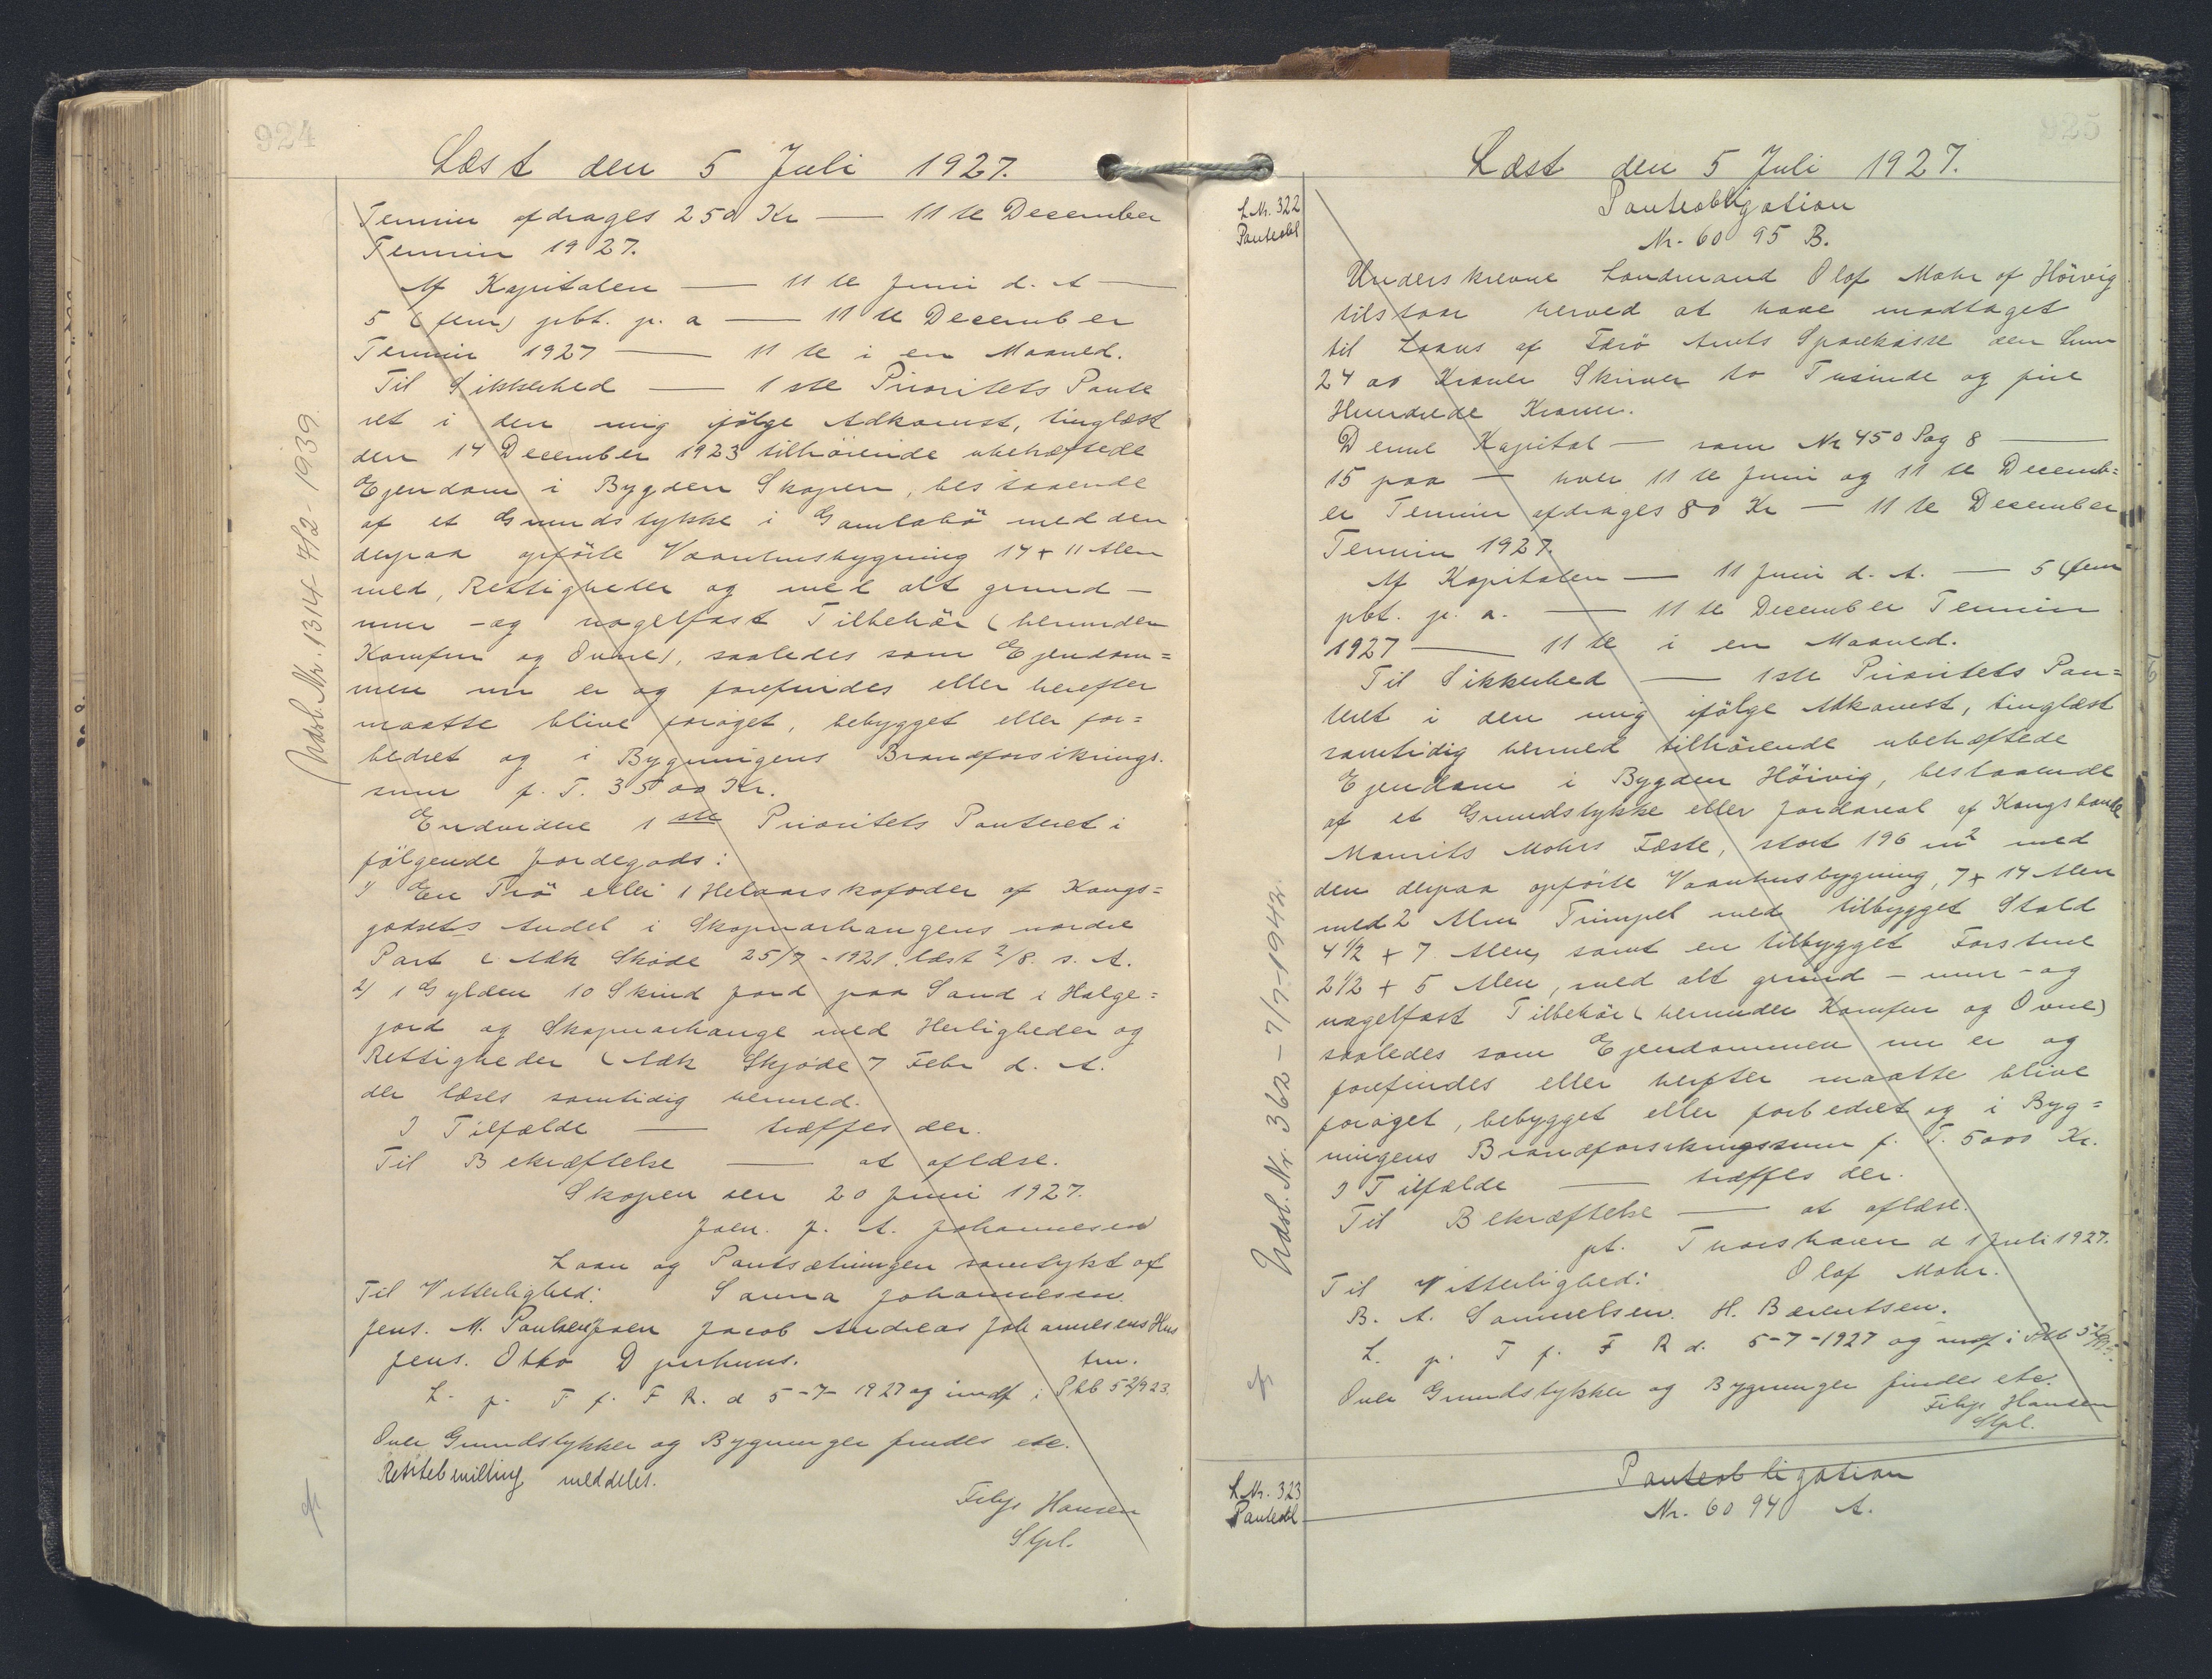 924
Læst den 5 Juli 1927.
Termin afdrages 250 Kr — 11te December
Termin 1927.
Af Kapitalen — 11te Juni d. A —
5 (fem) pbt. p. a — 11te December
Termin 1927 — 11te i en Maaned.
Til Sikkerhed — 1ste Prioritets Pante
ret i den mig ifølge Adkomst, tinglæst
den 14 December 1923 tilhörende ubehæftede
Ejendom i Bygden Skopen, bestaaende
af et Grundstykke i Gamlabö med den
derpaa opförte Vaanhusbygning 14 + 11 Alen
med, Rettigheder og med alt grund —
mur - og nagelfast Tilbehör (herunder
Komfur og Ovne), saaledes som Ejendom=
men nu er og forefindes eller herefter
maatte blive foröget, bebygget eller for=
bedret og i Bygningens Brandforsikrings.
sum p. T. 3500 Kr.
Endvidere 1ste Prioritets Panteret i
fölgende Jordegods:
1) En Trö eller 1 Helaarskofoder af Kongs=
godsets Andel i Skopnarhaugens nordre
Part (Adk Sköde 25/7 - 1921. læst 2/8. s. A.
2) 1 Gylden 10 Skind Jord paa Sand i Halge=
jord og Skopnarhauge med Herligheder og
Rettigheder (Adk Skjöde 7 Febr d. A.
der læses samtidig hermed.
I Tilfælde — træffes der.
Til Bekræftelse — at aflæse.
Skopen den 20 Juni 1927.
Joen. J. A. Johannesen
Laan og Pantsætningen samtykt af
Til Vitterlighed: Sanna Johannesen
Jens. M. Poulsen Joen Jacob Andreas Johannesens Hus
Jens. Otto Djurhuus. tru.
L. p. T f. F R. d 5-7-1927 og indf i Pkb 5 2/923.
Over Grundstykker og Bygninger findes etc.
Retsitebevilling meddelt.
Filip Hansen
Stpl.
Udsl. Nr. 1314 4/2 - 1939.
925
Læst den 5 Juli 1927.
L.Nr. 322
Panteobl
Panteobligation
Nr. 6095 B.
Underskrevne Landmand Olaf Mohr af Höivig
tilstaar herved at have modtaget
til Laans af Færö Amts Sparekasse den Sum
2400 Kroner Skriver to Tusinde og fire
Hundrede Kroner.
Denne Kapital — som Nr 450 Pag 8 —
15 paa — hver 11te Juni og 11te Decemb=
er Termin afdrages 80 Kr — 11te December
Termin 1927.
Af Kapitalen — 11 Juni d. A. — 5 (fem
pbt. p. a. — 11te December Termin
1927 — 11te i en Maaned.
Til Sikkerhed — 1ste Prioritets Pan=
teret i den mig ifölge Adkomst, tinglæst
samtidig hermed tilhörende ubehæftede
Ejendom i Bygden Höivig, bestaaende
af et Grundstykke eller Jordareal af Kongsbonde
Mourits Mohrs Fæste, stort 196 m2 med
den derpaa opförte Vaanhusbygning, 7 + 14 Alen
med 2 Alen Trimpel med tilbygget Stald
4 1/2 + 7 Alen, samt en tilbygget Forstue
2 1/2 + 5 Alen, med alt grund - mur - og
nagelfast Tilbehör (herunder Komfur og Ovne)
saaledes som Ejendommen nu er og
forefindes eller herefter maatte blive
foröget, bebygget eller forbedret og i Byg=
ningens Brandforsikringssum p. T. 5000 Kr.
I Tilfælde — træffes der.
Til Bekræftelse — at aflæse.
pt. Thorshavn d 1 Juli 1927.
Til Vitterlighed: Olaf Mohr.
B. A. Samuelsen. H. Berentsen.
L. p. T f. F R d. 5-7-1927 og indf i Pkb 5
Over Grundstykker og Bygninger findes etc.
Filip Hansen
Stpl.
Udsl. Nr. 362 - 7/7-1942.
L.Nr. 323
Panteobl
Panteobligation
Nr. 6094 A.